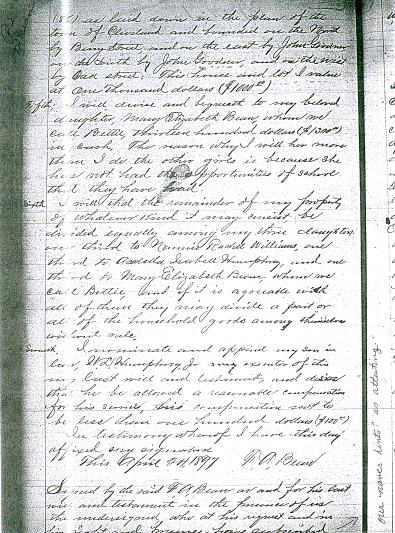 (82) as laid down in the plan of the
town of Cleveland and bounded on the North
by Berry Street, and on the east by John Goodner
on the South by John Goodner, and on the west
by Oak street. This house and lot I value
at one thousand dollars ($1000.00)
Fifth, I will devise and bequest to my beloved
daughter, Mary Elizabeth Bean, whom we
call Bettie, thirteen hundred dollars ($1300.00)
in cash. The reason why I will her more
than I do the other girls is because she
has not had the opportunities of school
that they have had.
Sixth I will that the remainder of my property
of whatever kind it may consist be
divided equally among my three daughters
one third to Nannie Rachel Williams, one
third to Isabell Humphrey, and one
third to Mary Elizabeth Bean, whom we
call Bettie, and if it is agreeable with
all of them they may divide a part or
all of the household goods among themselves
without sale.
Seventh, I nominate and appoint my son in
law, W.L. Humphrey Jr my executor of this
my last will and testament, and desire
that he be allowed a reasonable compensation
for his services, his compensation not to
be less than one hundred dollars ($100.00)
In testimony whereof I have this day
affixed my signature
This April 24 1897 F. A. Bean
Signed by the said F. A. Bean as and for his last
will and testament in the presence of us
the undersigned, who at his request and in
his sight and presence have subscribed
our names hereto as attesting